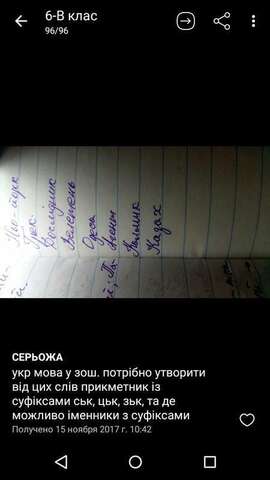 6-В клас
96/96
Нью-йорк
Грек
Дослідник
Велетень
Одеса
Агент
Калмик
Казах
СЕРЬОЖА
укр мова у зош. потрібно утворити
від цих слів прикметник із
суфіксами ськ, цьк, зьк, та де
можливо іменники з суфіксами
Получено 15 ноября 2017 г. 10:42